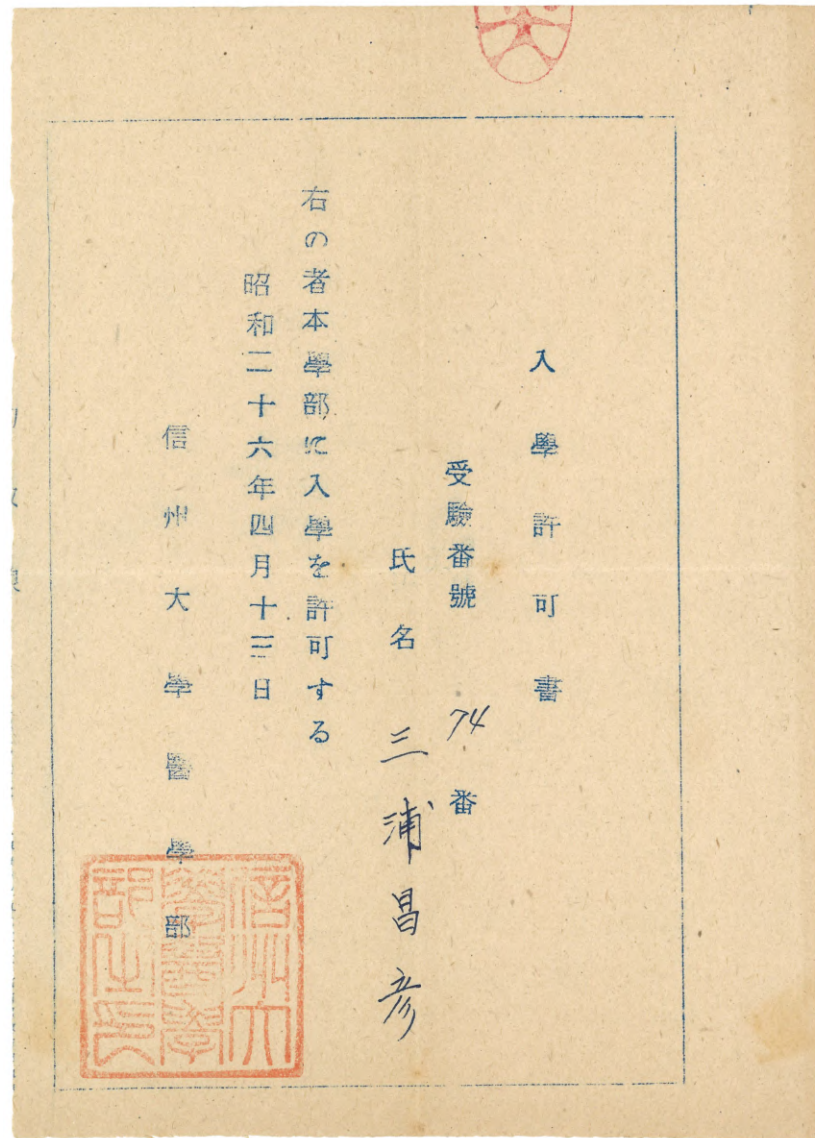 入學許可書
受驗番號 74番
氏名 三浦昌彦
右の者本學部に入學を許可する
昭和二十六年四月十三日
信州大學醫學部
信州大
學醫學
部之印